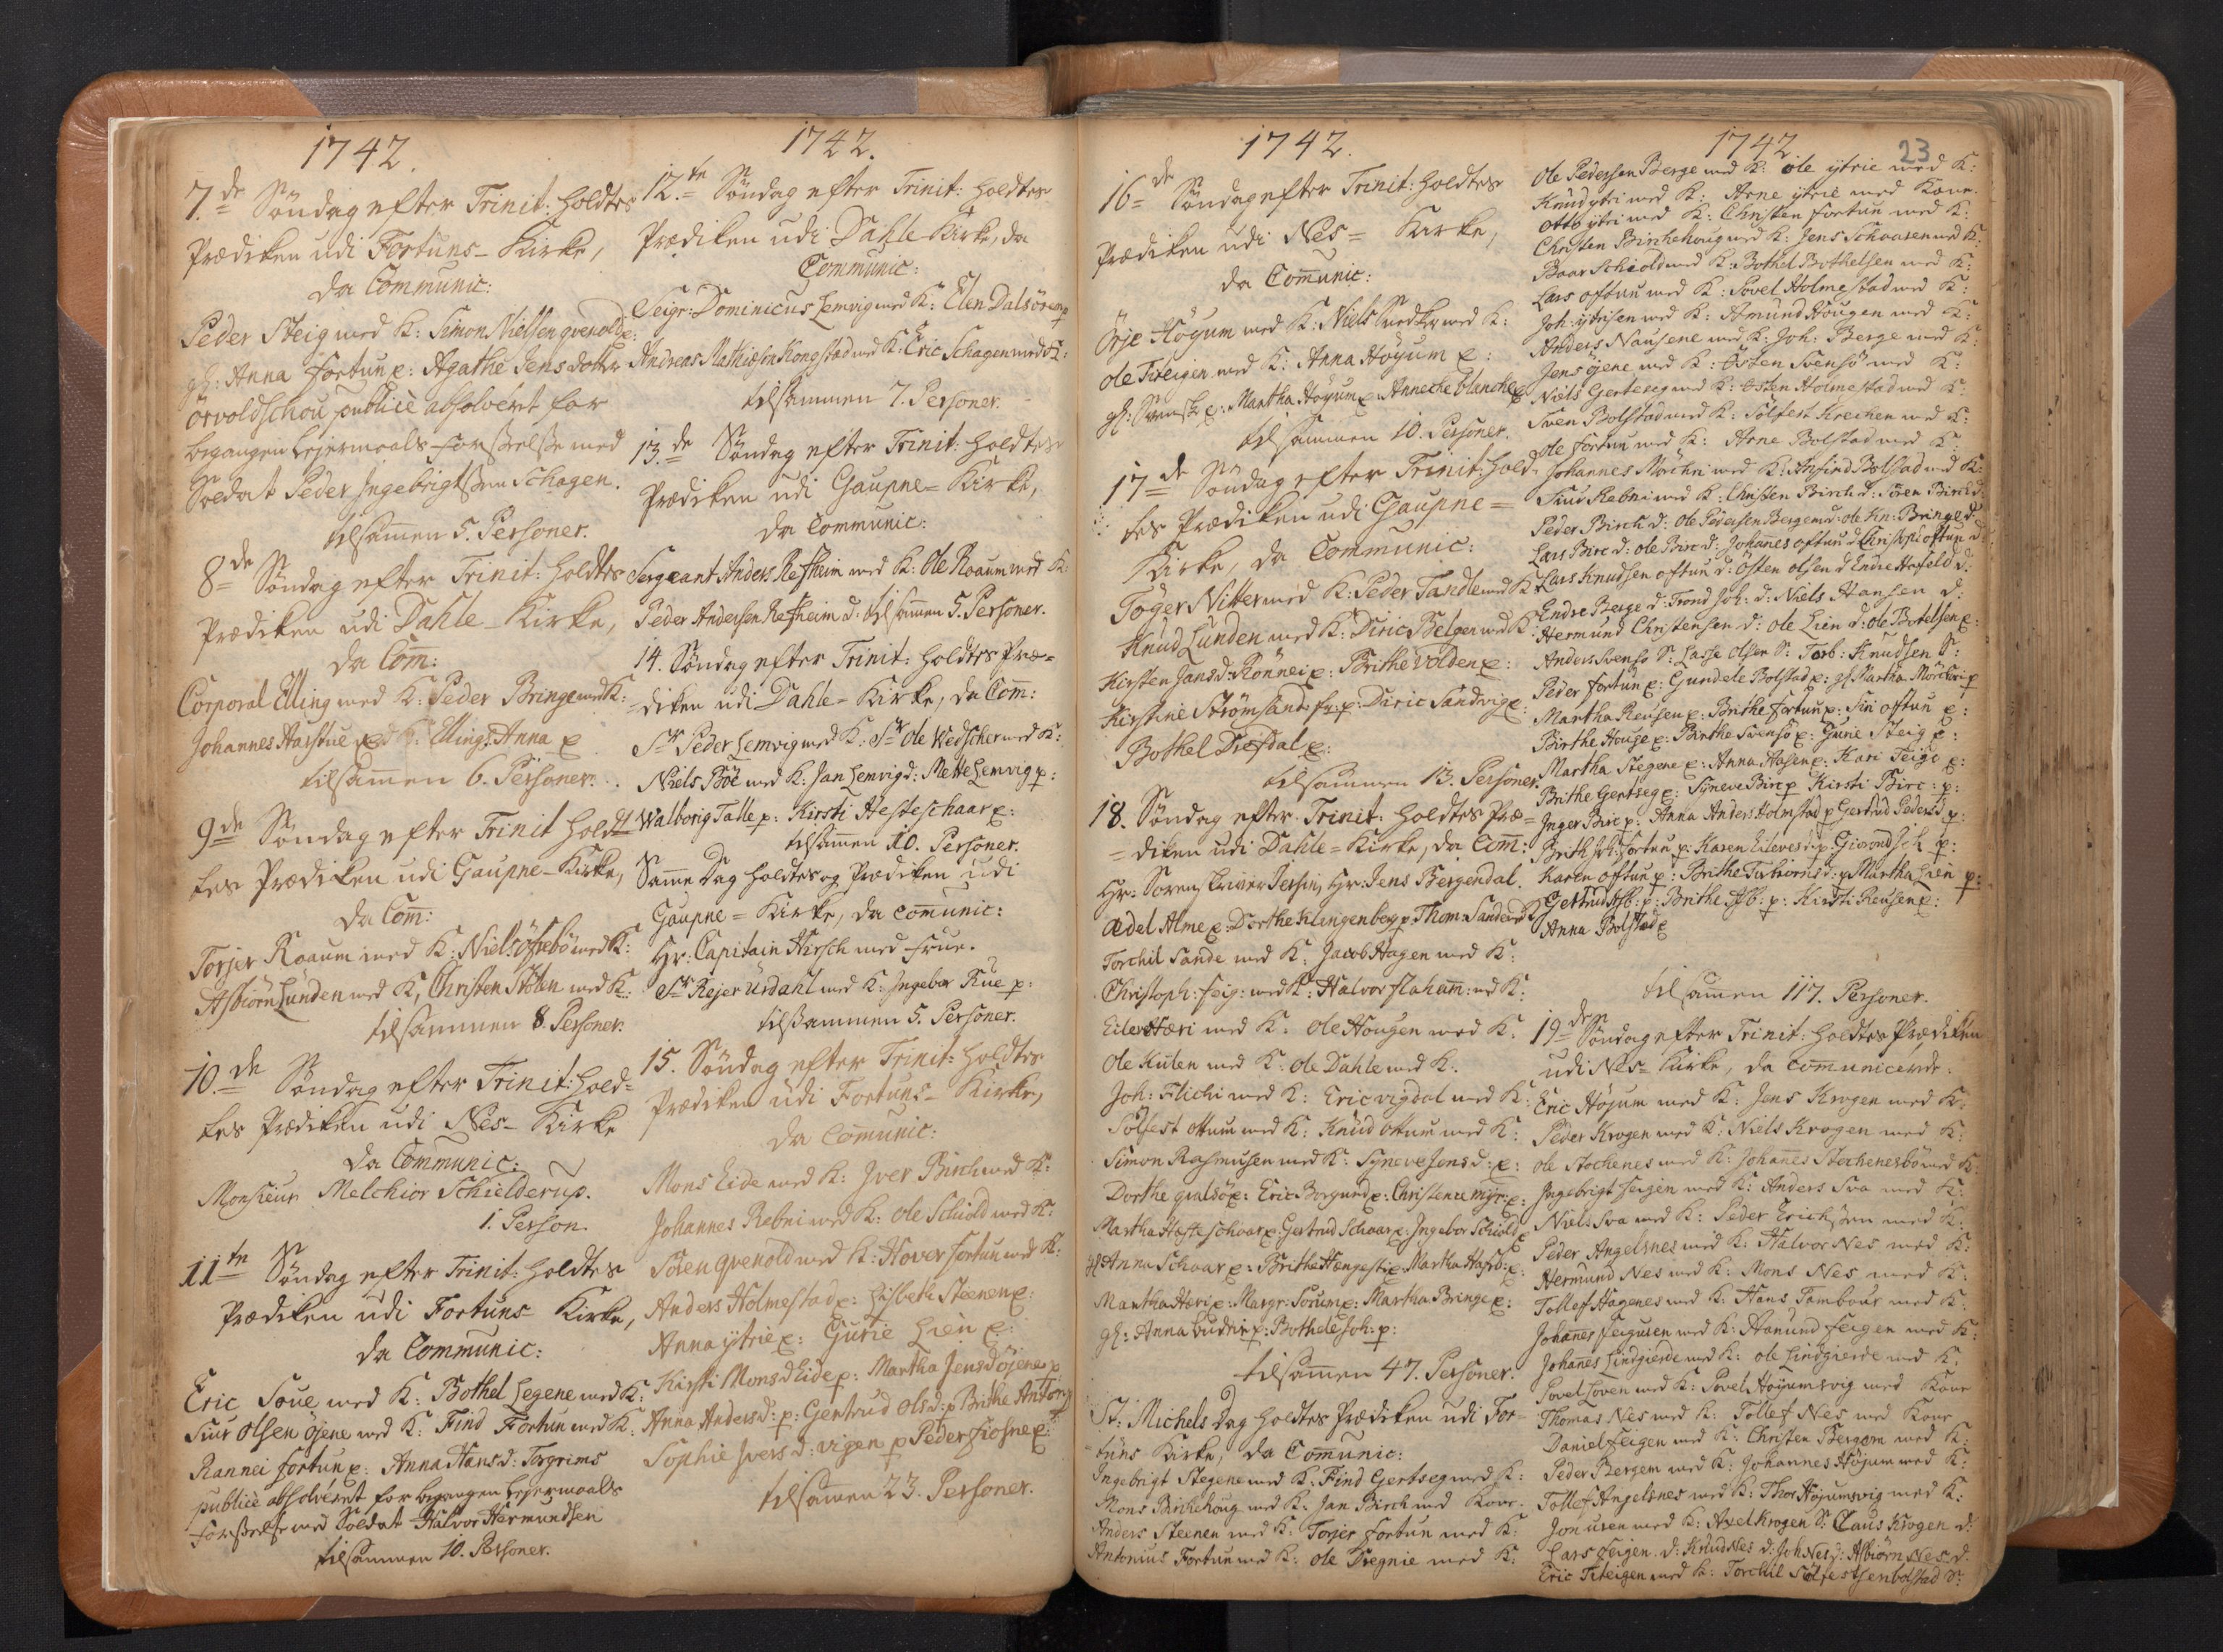 1742.
7.de Söndag efter Trinit: holdtes
Prædiken udi Fortuns-Kirke,
da Communic:
Peder Steig med K: Simon Nielsen qvenold p:
gl: Anna fortun p: Agathe Jens dotter
örvoldschou publicè absolveret for
begangen lejermaals-forseelse med
Soldat Peder Ingebrigtsen Schagen.
tilsamen 5. Personer.
8de Söndag efter Trinit: holdtes
Prædiken udi Dahle-Kirke,
da Com:
Corporal Elling med K: Peder Bringe med K:
Johannes Harstue med K: Elling: Anna p
tilsamen 6. Personer.
9de Söndag efter Trinit holdt
tes Prædiken udi Gaupne-Kirke,
da Com:
Torjer Roaum med K: Niels öfrebö med K:
Asbiörn Lunden med K, Christen Stölen med K:
tilsammen 8. Personer.
10.de Söndag efter Trinit: hold=
tes Prædiken udi Nes-Kirke
da Communic:
Monsieur Melchior Schielderup.
1. Person.
11te Söndag efter Trinit: holdtes
Prædiken udi Fortuns Kirke,
da Communic:
Eric Soue med K: Bothel Legene med K:
Siur olsen öjene med K: Find Fortun med K:
Rannei fortun p: Anna Hansd: Torgrims
publicè absolveret for begangen lejermaals
forseelse med Soldat Halvor Hermundsen
tilsammen 10. Personer.
1742.
12.te Söndag efter Trinit: holdtes
Prædiken udi Dahle Kirke, da
Communic:
Seigr: Dominicus Lemvig med K: Elen Dalsören p
Andreas Mathiesen Kongstad med K: Eric Schagen med K:
tilsammen 7. Personer.
13.de Söndag efter Trinit: holdtes
Prædiken udi Gaupne=Kirke,
da Communic:
Sergeant Anders Refheim med K: Ole Roaum med K:
Peder Andersen Refheim d: tilsamen 5. Personer.
14. Söndag efter Trinit: holdtes Præ=
=diken udi Dahle=Kirke, da Com:
Sr Peder Lemvig med K: Sr Ole Wedscher med K:
Niels Böe med K: Jan Lemvig d: Mette Lemvig p:
Walborig Talle p: Kirsti Hesteschaar p:
tilsamen 10. Personer.
Samme Dag holdtes og Prædiken udi
Gaupne=Kirke, da communic:
Hr: Capitain Hirsch med frue.
Sr Rejer Urdahl med K: Ingebor Rue p:
tilsammen 5. Personer.
15. Söndag efter Trinit: holdtes
Prædiken udi Fortuns-Kirke,
da Comunic:
Mons Eide med K: Iver Birch med K:
Johannes Rebni med K: Ole Schiold med K:
Sören qvenold med K: Hover Fortun med K:
Anders Holmestad p: Lisbeth Steenen p:
Anna ytrie p: Gurie Lien p:
Kirsti Monsd Eide p: Martha Jensd öjene p
Anna Andersd: p: Gertrud Olsd: p Brithe Anton p
Sophie Iversd: vigen p Peder fiösne p:
tilsamen 23. Personer.
1742.
16de Söndag efter Trinit: holdtes
Prædiken udi Nes=Kirke,
da Comunic:
Örje Höyum med K: Niels Snedker med K:
Ole Titeigen med K: Anna Höyum p:
gl: p: Martha Höyum p: Anneche blanche p
tilsammen 10. Personer.
17de Söndag efter Trinit: hold=
tes Prædiken udi Gaupne=
Kirke, da Communic:
Töger Nitter med K: Peder Tandle med K:
Knud Lunden med K: Diric Belgen med K:
Kirsten Jansd: Rönnei p: Brithe Volden p:
Kirstine Strömsand fr: p: Diric Sandvig p:
Bothel Diesdal p:
tilsammen 13. Personer.
18. Söndag efter Trinit: holdtes Præ=
=diken udi Dahle=Kirke, da Com:
Hr: Soren skriver Jersin, Hr: Jens Bergendal.
Ædel Alme p: Dorthe Klingenberg p: Thom: Sande med K:
Torchil Sande med K: Jacob Hagen med K:
Christoph: feig: med K: Halvor flaham: md K:
Eiler Hæri med K: Ole Hougen med K:
Ole Kulen med K: Ole Dahle med K.
Joh: Flichi med K: Eric vigdal med K:
Sölfest ottum med K: Knud ottum med K:
Simon Rasmusen med K: Syneve Jensd: p:
Dorthe qvalsö p: Eric Borgund p: Christence myr p:
Martha Hesteschaar p: Gertrud Schaar p: Ingebor Schiold p
gl Anna Schaar p: Brithe Hængesti p: Martha Hasl: p:
Mantha Hæri p: Margr: Sorum p: Martha Bringe p:
gl: Anna budeie p: Bothele Joh: p:
tilsamen 47. Personer.
St: Michels Dag holdtes Prædiken udi For=
tuns Kirke, da Comunic:
Ingebrigt Stegene med K: Find Gertseg med K:
Mons Birchehoug med K: Jan Birch med Kone.
Anders Steenen med K: Torjer fortun med K:
Antonius Fortun med K: Ole Tregnie med K:
1742
23
Ole Pedersen Berge med K: ole ytrie med K:
Knud ytri med K: Arne ytrie med Kone.
Otto ytri med K: Christen fortun med K:
Christen Birchehoug med K: Jens Schaaren med K:
Baar Schiold med K: Bothel Bothelsen med K:
Lars oftun med K: Povel Holmestad med K:
Joh: ydrisen med K: Amund Hougen med K:
Anders Nausene med K: Joh: Berge med K:
Jens öjene med K: Östen Svensö med K:
Niels Gerteseg med K: Östen Holmestad med K:
Sven Bolstad med K: Sölfest Krechen med K:
Ole fortun med K: Arne Bolstad med K:
Johannes Mörchri med K: Anfind Bolstad med K:
Siur Rebni med K: Christen Birch d: Sören Birch d:
Peder Birch d: Ole Pedersen Bergen d: Ole Kn: Bringe d:
Lars Birc d: ole Birc d: Johannes oftun d Christoph: oftun d
Lars Knudsen oftun d: Östen olsen d Endre Hæfeld d:
Endre Berge d: Trond Joh: d: Niels Hansen d:
Hermund Christensen d: Ole Lien d: Ole Botelsen p:
Anders Svensö S: Lasse Olsen S: Torb: Knudsen S:
Peder fortun p: Gundele Bolstad p: gl Martha Mörchri p
Martha Reusen p: Brithe fortun p: Siri oftun p:
Birthe House p: Birthe Svensö p: Gurie Steig p:
Martha Stegene p: Anna Hasen p: Kari Teige p:
Brithe Gertseg p: Syneve Birc p Kirsti Birc: p:
Inger Birc p: Anna Anders Holmstad p Gertrud Pedersd p:
Brith Joh: fortun p: Karen Eilevesd: p: Giorond Joh p:
Karen oftun p: Brithe Torbiörnsd: p Martha Lien p:
Gertrud Asb: p: Brithe Asb: p: Kirsti Reusen p:
Anna Bolstad p
tilsamen 117. Personer.
19de Söndag efter Trinit: holdtes Prædiken
udi Nes=Kirke, da comunicerede:
Eric Höjum med K: Jens Krogen med K:
Peder Krogen med K: Niels Krogen med K:
Ole Stochenes med K: Johannes Stochenesbö med K:
Ingebrigt feigen med K: Anders Sva med K:
Niels Sva med K: Peder Erichsen med K:
Peder Angelsnes med K: Halvor Nes med K:
Hermund Nes med K: Mons Nes med K:
Tollef Hagenes med K: Hans Tambour med K:
Johannes feigusen med K: Hamund feigen med K:
Johannes Lindgierde med K: Ole Lindgierde med K:
Povel Löven med K: Povel Höyumsvig med Kone
Thomas Nes med K: Tollef Nes med Kone
Daniel feigen med K: Christen Bergem med K:
Peder Bergem med K: Johannes Höjum med K:
Tollef Angelsnes med K: Thor Höyumsvig med K:
Jon usen med K: Axel Krogen S: Claus Krogen d:
Lars feigen d: Knud Nes d: Joh Nes d: Asbiörn Nes d.
Eric Titeigen med K: Torchil Sölfestsen bolstad S: